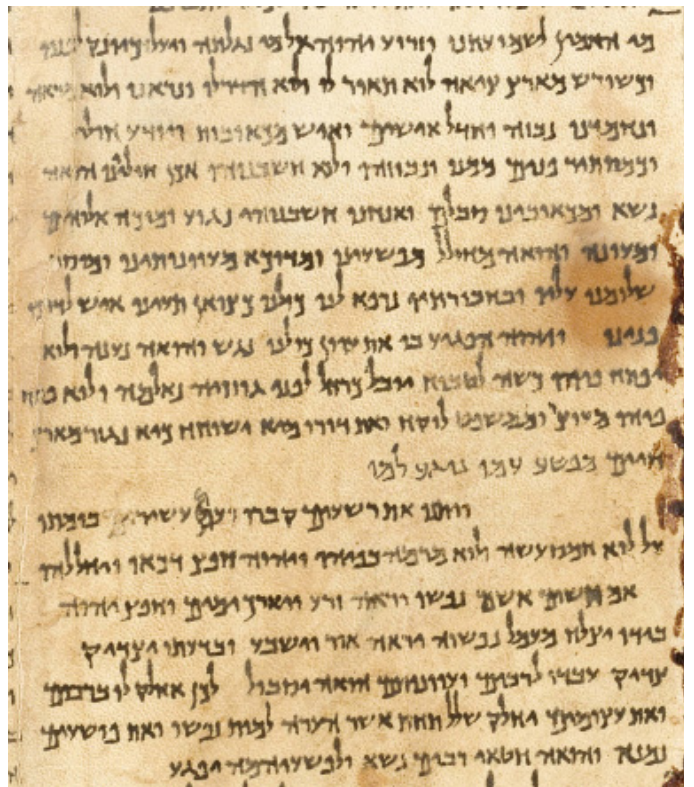 מי האמין לשמועתנו וזרוע יהוה אל מי נגלתה ויעל כיונק לפניו
וכשורש מארץ ציאה לוא תואר לו ולוא הדר לו ונראנו ולוא מראה
ונחמדנו נבזה וחדל אישים ואיש מכאובות ויודע חולי
וכמסתיר פנים ממנו ונבוזהו ולוא חשבנוהו אכן חוליינו הואה
נשא ומכאובינו סבלם ואנחנו חשבנוהו נגוע ומוכה אלוהים
ומעונה והואה מחולל מפשעינו ומדוכא מעוונותינו ומוסר
שלומנו עליו ובחבורתיו נרפא לנו כולנו כצואן תעינו איש לדרכו
פנינו ויהוה הפגיע בו את עוון כולנו נגש והואה נענה ולוא
יפתח פיהו כשה לטבוח יובל כרחל לפני גוזזיה נאלמה ולוא פתח
פיהו מעוצר וממשפט לוקח ואת דורו מיא ישוחח כיא נגזר מארץ
חיים מפשע עמו נוגע למו
ויתנו את רשעים קברו ועם עשיר בומתו
על לוא חמס עשה ולוא מרמה בפיהו ויהוה חפץ דכאו ויחללהו
אם תשים אשם נפשו יראה זרע ויארך ימים וחפץ יהוה
בידו יצלח מעמל נפשוה יראה אור וישבע ובדעתו יצדיק
צדיק עבדו לרבים ועוונותם הואה יסבול לכן אחלק לו ברבים
ואת עצומים יחלק שלל תחת אשר הערה למות נפשו ואת פושעים
נמנה והואה חטאי רבים נשא ולפשעיהמה יפגע